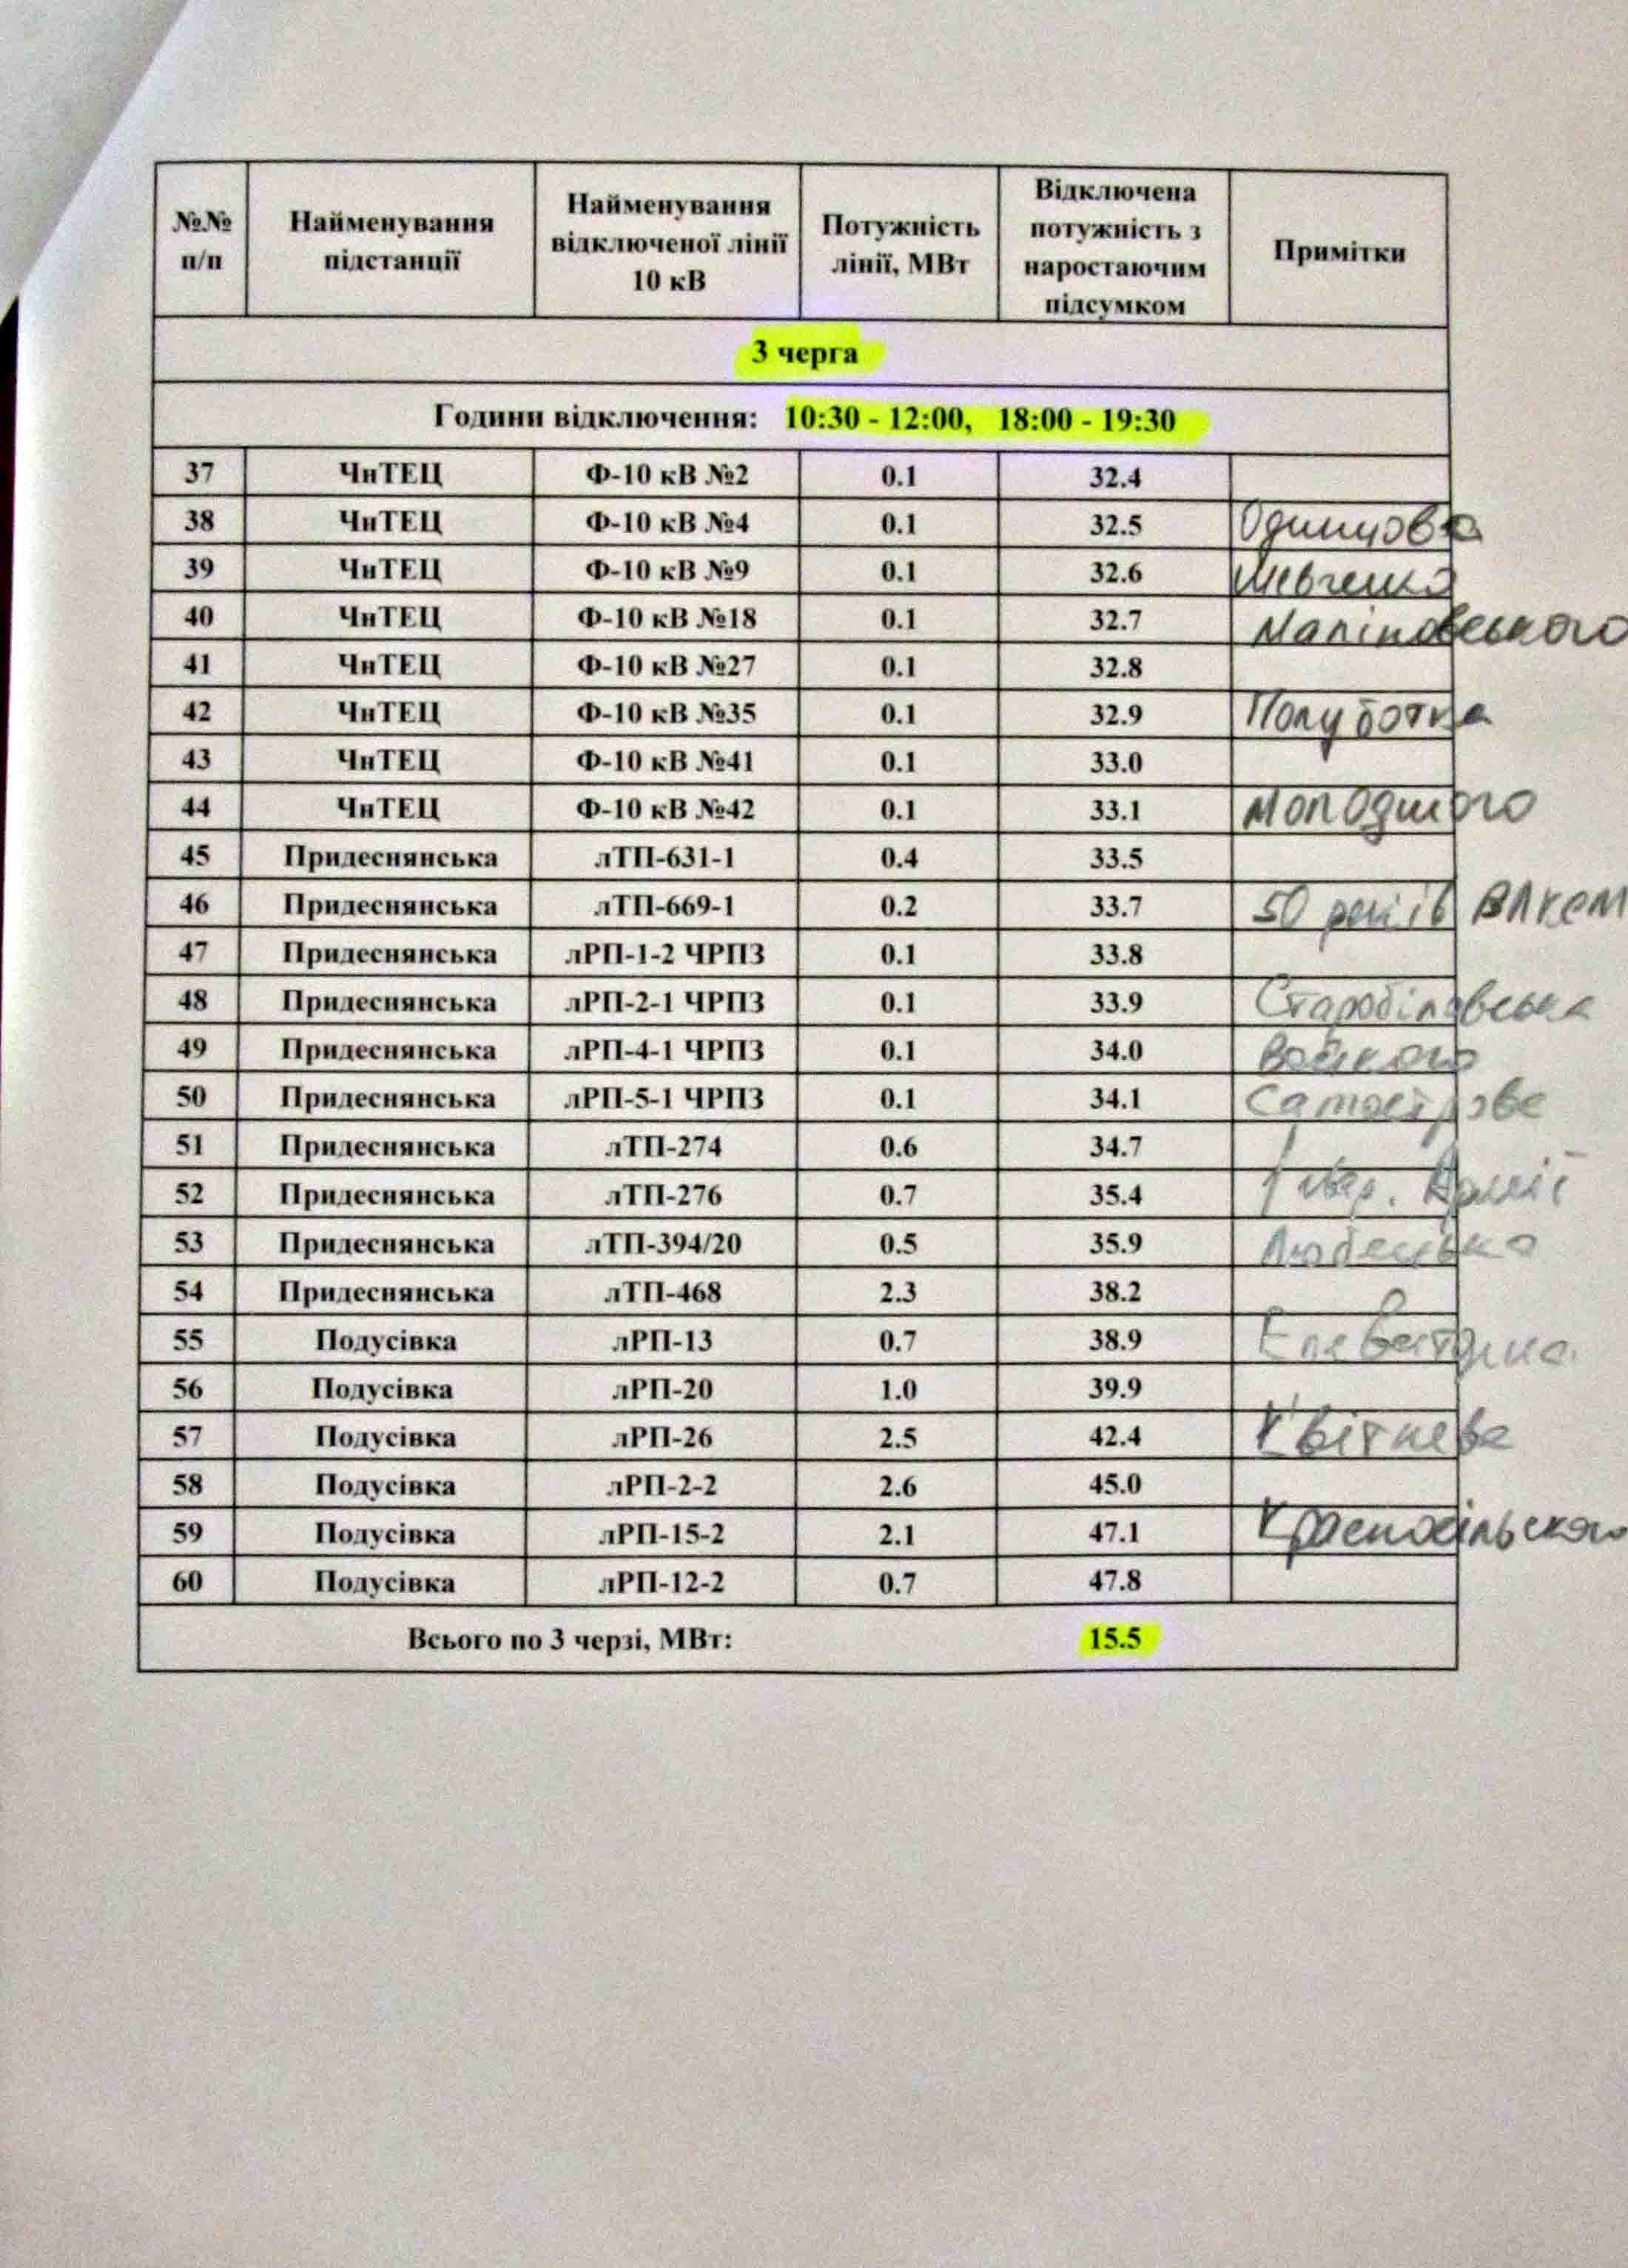 №№ п/п Найменування підстанції Найменування відключеної лінії 10 кВ Потужність лінії, МВт Відключена потужність з наростаючим підсумком Примітки
3 черга
Години відключення: 10:30 - 12:00, 18:00 - 19:30
37 ЧнТЕЦ Ф-10 кВ №2 0.1 32.4
38 ЧнТЕЦ Ф-10 кВ №4 0.1 32.5 Одинцова
39 ЧнТЕЦ Ф-10 кВ №9 0.1 32.6 Шевченка
40 ЧнТЕЦ Ф-10 кВ №18 0.1 32.7 Маліновського
41 ЧнТЕЦ Ф-10 кВ №27 0.1 32.8
42 ЧнТЕЦ Ф-10 кВ №35 0.1 32.9 Полуботка
43 ЧнТЕЦ Ф-10 кВ №41 0.1 33.0
44 ЧнТЕЦ Ф-10 кВ №42 0.1 33.1 Молодчого
45 Придеснянська лТП-631-1 0.4 33.5
46 Придеснянська лТП-669-1 0.2 33.7 50 років ВЛКСМ
47 Придеснянська лРП-1-2 ЧРПЗ 0.1 33.8
48 Придеснянська лРП-2-1 ЧРПЗ 0.1 33.9 Старобілоуська
49 Придеснянська лРП-4-1 ЧРПЗ 0.1 34.0
50 Придеснянська лРП-5-1 ЧРПЗ 0.1 34.1
51 Придеснянська лТП-274 0.6 34.7
52 Придеснянська лТП-276 0.7 35.4
53 Придеснянська лТП-394/20 0.5 35.9
54 Придеснянська лТП-468 2.3 38.2
55 Подусівка лРП-13 0.7 38.9
56 Подусівка лРП-20 1.0 39.9
57 Подусівка лРП-26 2.5 42.4 Квітнева
58 Подусівка лРП-2-2 2.6 45.0
59 Подусівка лРП-15-2 2.1 47.1
60 Подусівка лРП-12-2 0.7 47.8
Всього по 3 черзі, МВт: 15.5